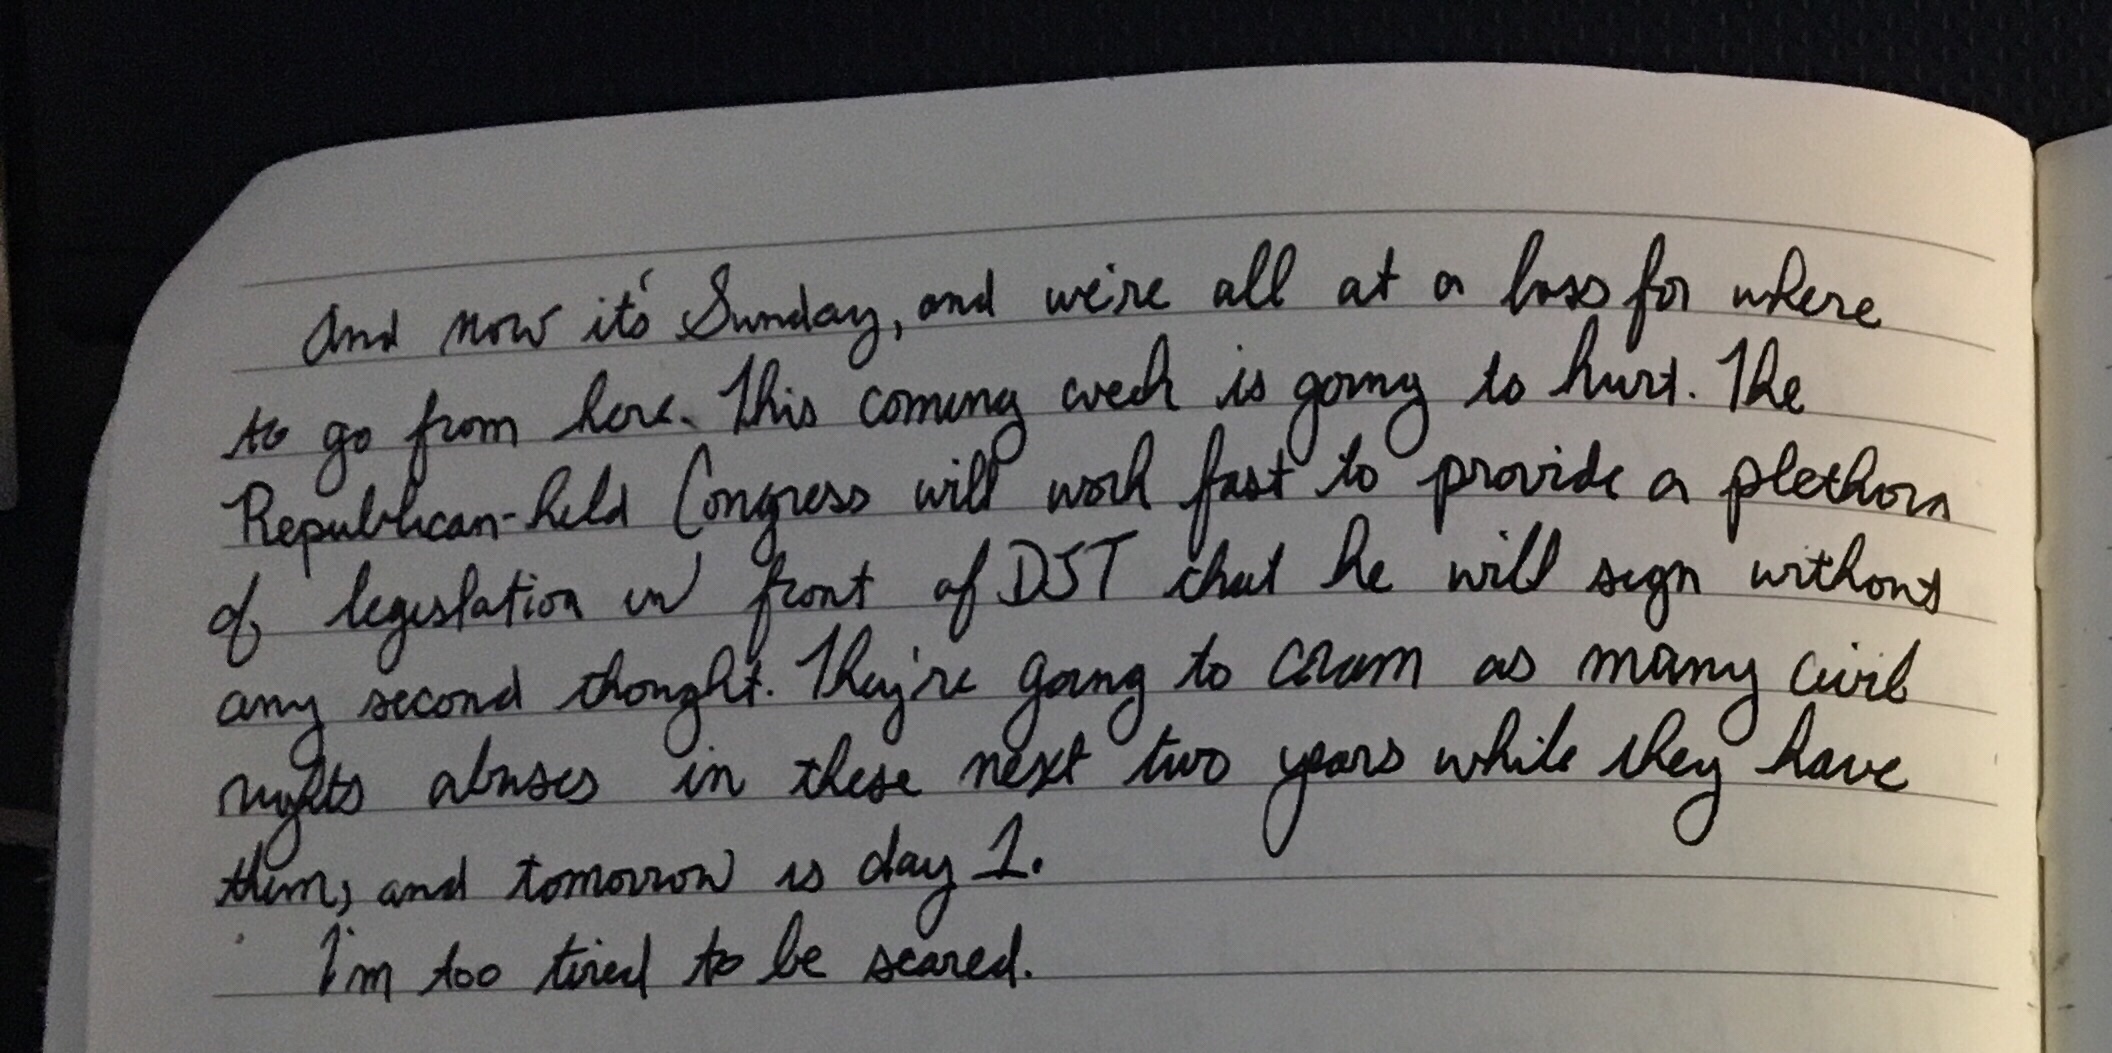 And now it's Sunday, and we're all at a loss for where
to go from here. This coming week is going to hurt. The
Republican-held Congress will work fast to provide a plethora
of legislation in front of DJT that he will sign without
any second thought. They're going to cram as many civil
rights abuses in these next two years while they have
them, and tomorrow is day 1.
I'm too tired to be scared.